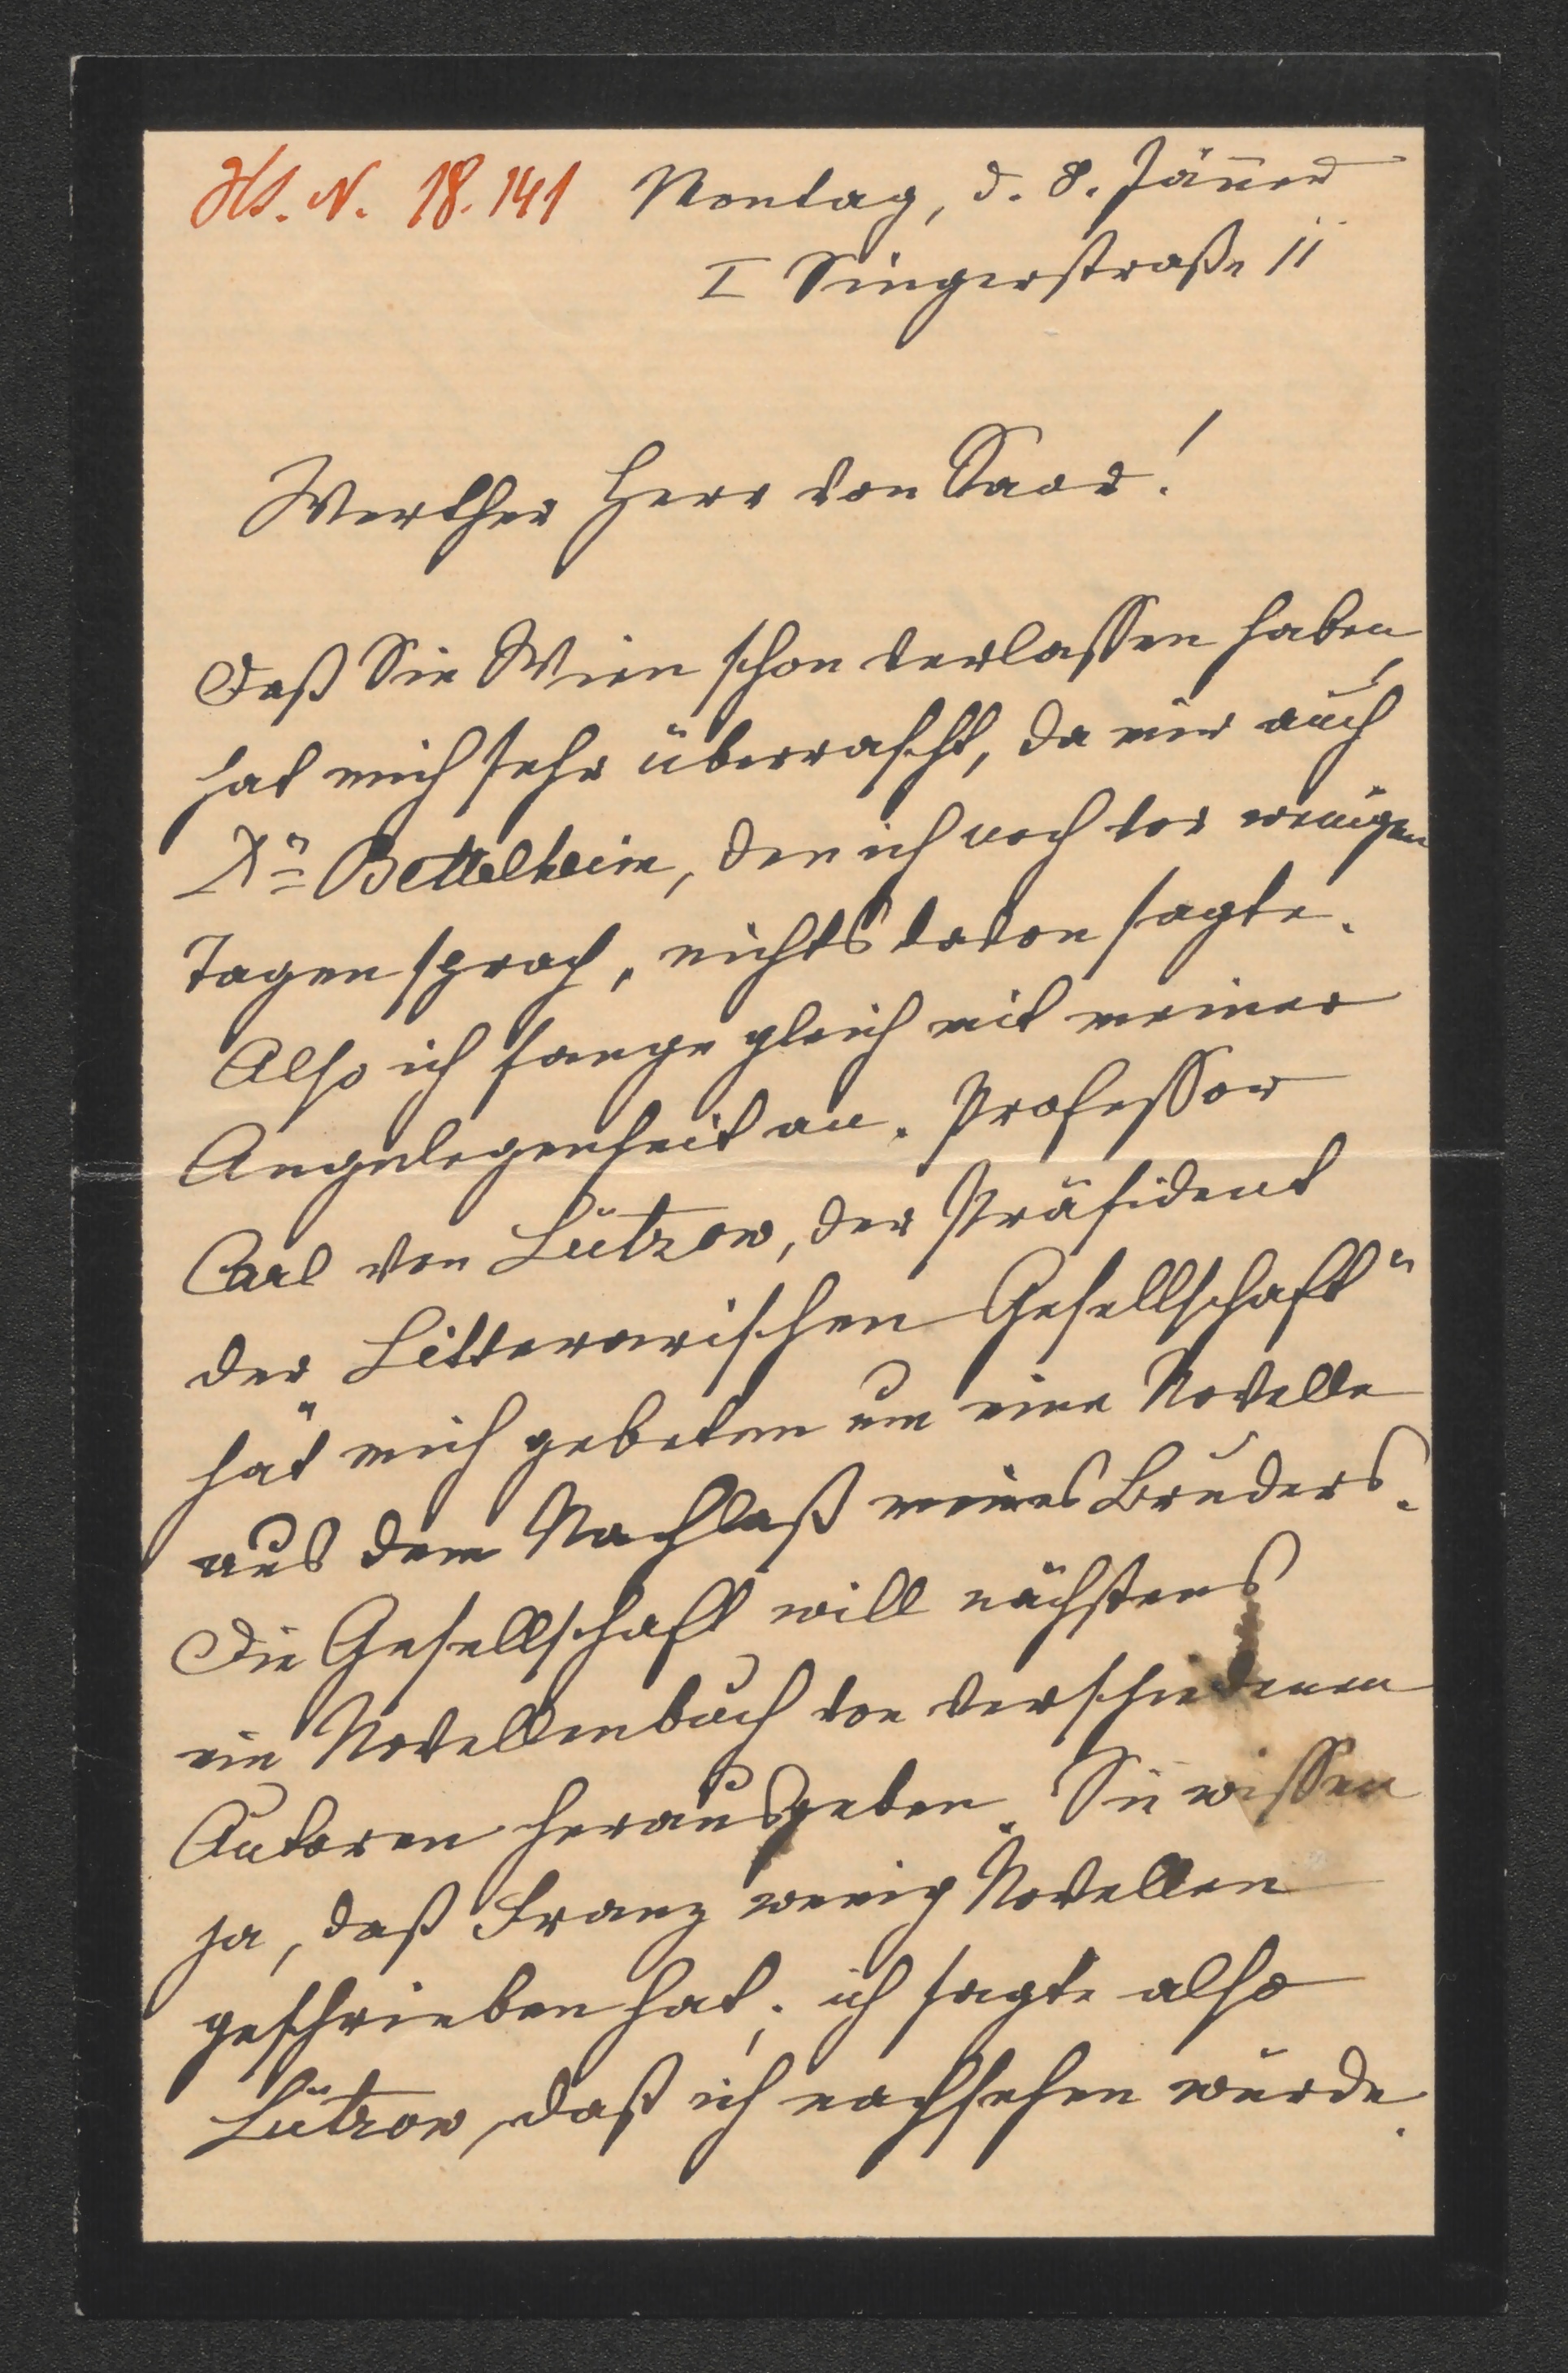 Hs. N. 18.141
Montag, d. 8. Jäner
I Singerstraße 11
Werther Herr von Saar!
Daß Sie Wien schon verlassen haben,
hat mich sehr überrascht, da mir auch
Dr Bettelheim, den ich noch vor wenigen
Tagen sprach, nichts davon sagte.
Also ich fange gleich mit meiner
Angelegenheit an. Professor
Carl von Lützow, der Präsident
der „Litterarischen Gesellschaft“
hat mich gebeten um eine Novelle
aus dem Nachlaß meines Bruders.
Die Gesellschaft will nächstens
ein Novellenbuch von verschiedenen
Autoren herausgeben. Sie wissen
ja, daß Franz wenig Novellen
geschrieben hat; ich sagte also
Lützow, daß ich nachsehen würde.